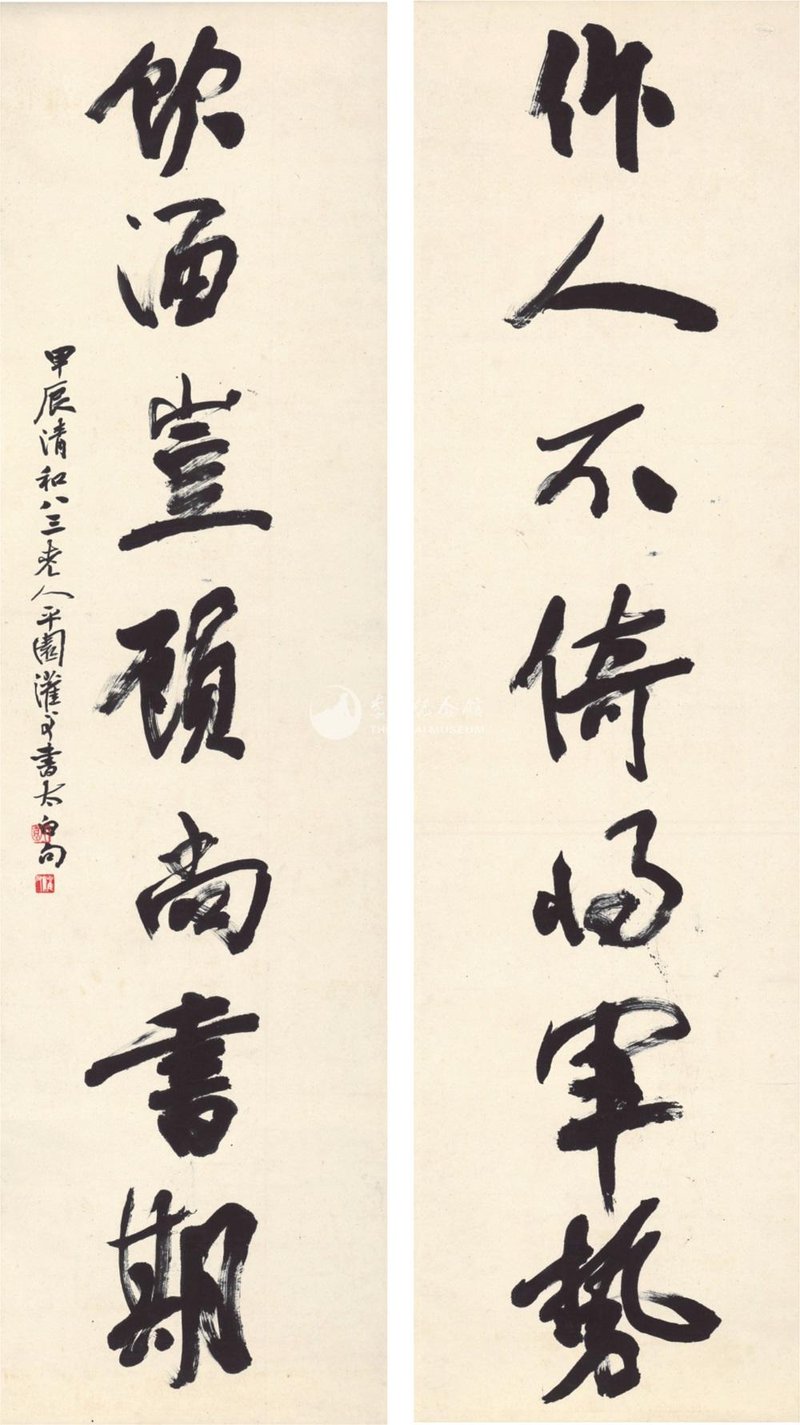 作人不倚將軍勢
飲酒豈顧尚書期
甲辰清和八三老人平園灌叟書太白句
THE MUSEUM